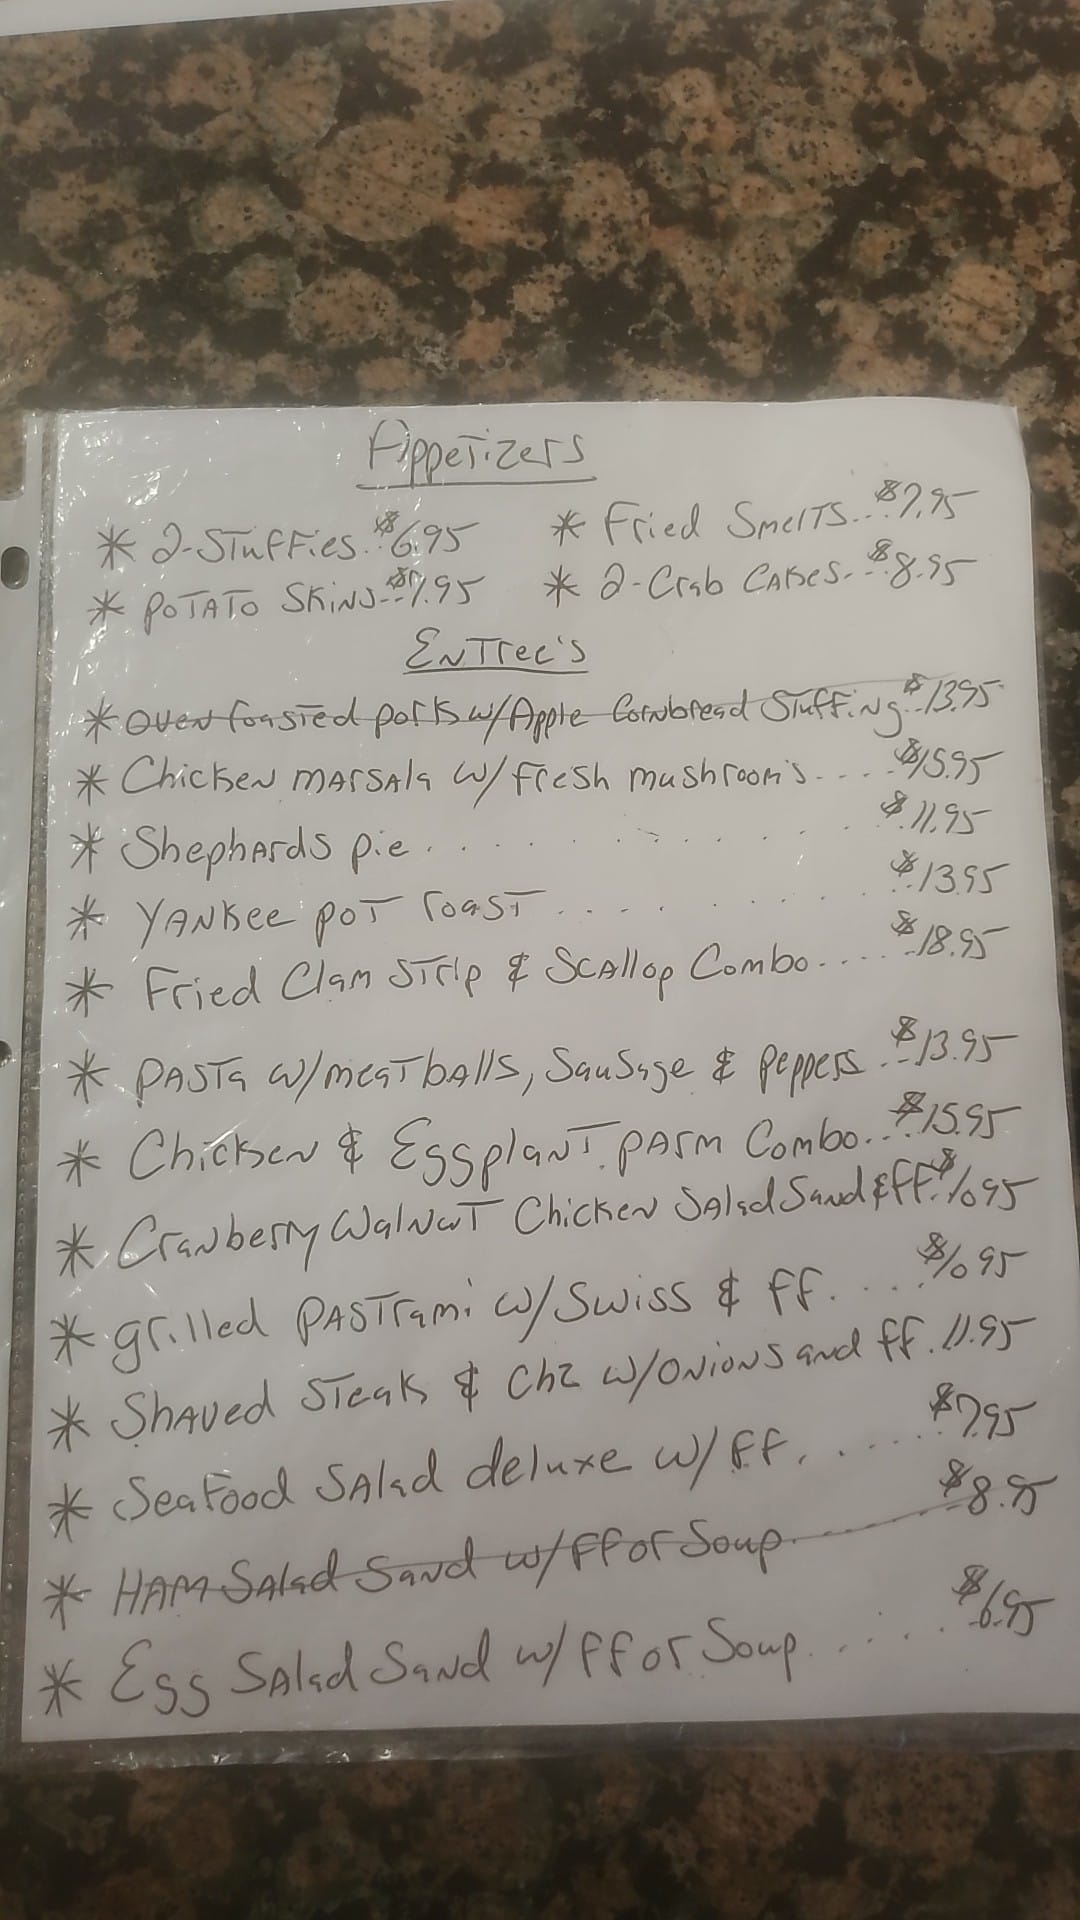 Appetizers
* 2-Stuffies..$6.95 * Fried Smelts...$7.95
* Potato Skins...$7.95 * 2-Crab Cakes...$8.95
Entree's
* Oven roasted pork w/Apple Cornbread Stuffing..$13.95
* Chicken marsala w/fresh mushroom's.....$15.95
* Shephards pie..........$11.95
* Yankee pot roast..........$13.95
* Fried Clam Strip & Scallop Combo......$18.95
* Pasta w/meatballs, Sausage & peppers...$13.95
* Chicken & Eggplant parm Combo...$15.95
* Cranberry Walnut Chicken Salad Sand & ff.$10.95
* grilled Pastrami w/Swiss & ff.....$10.95
* Shaved Steak & Chz w/onions and ff.11.95
* Seafood Salad deluxe w/ff.......$7.95
* Ham Salad Sand w/ff or Soup......$8.95
* Egg Salad Sand w/ff or Soup......$6.95